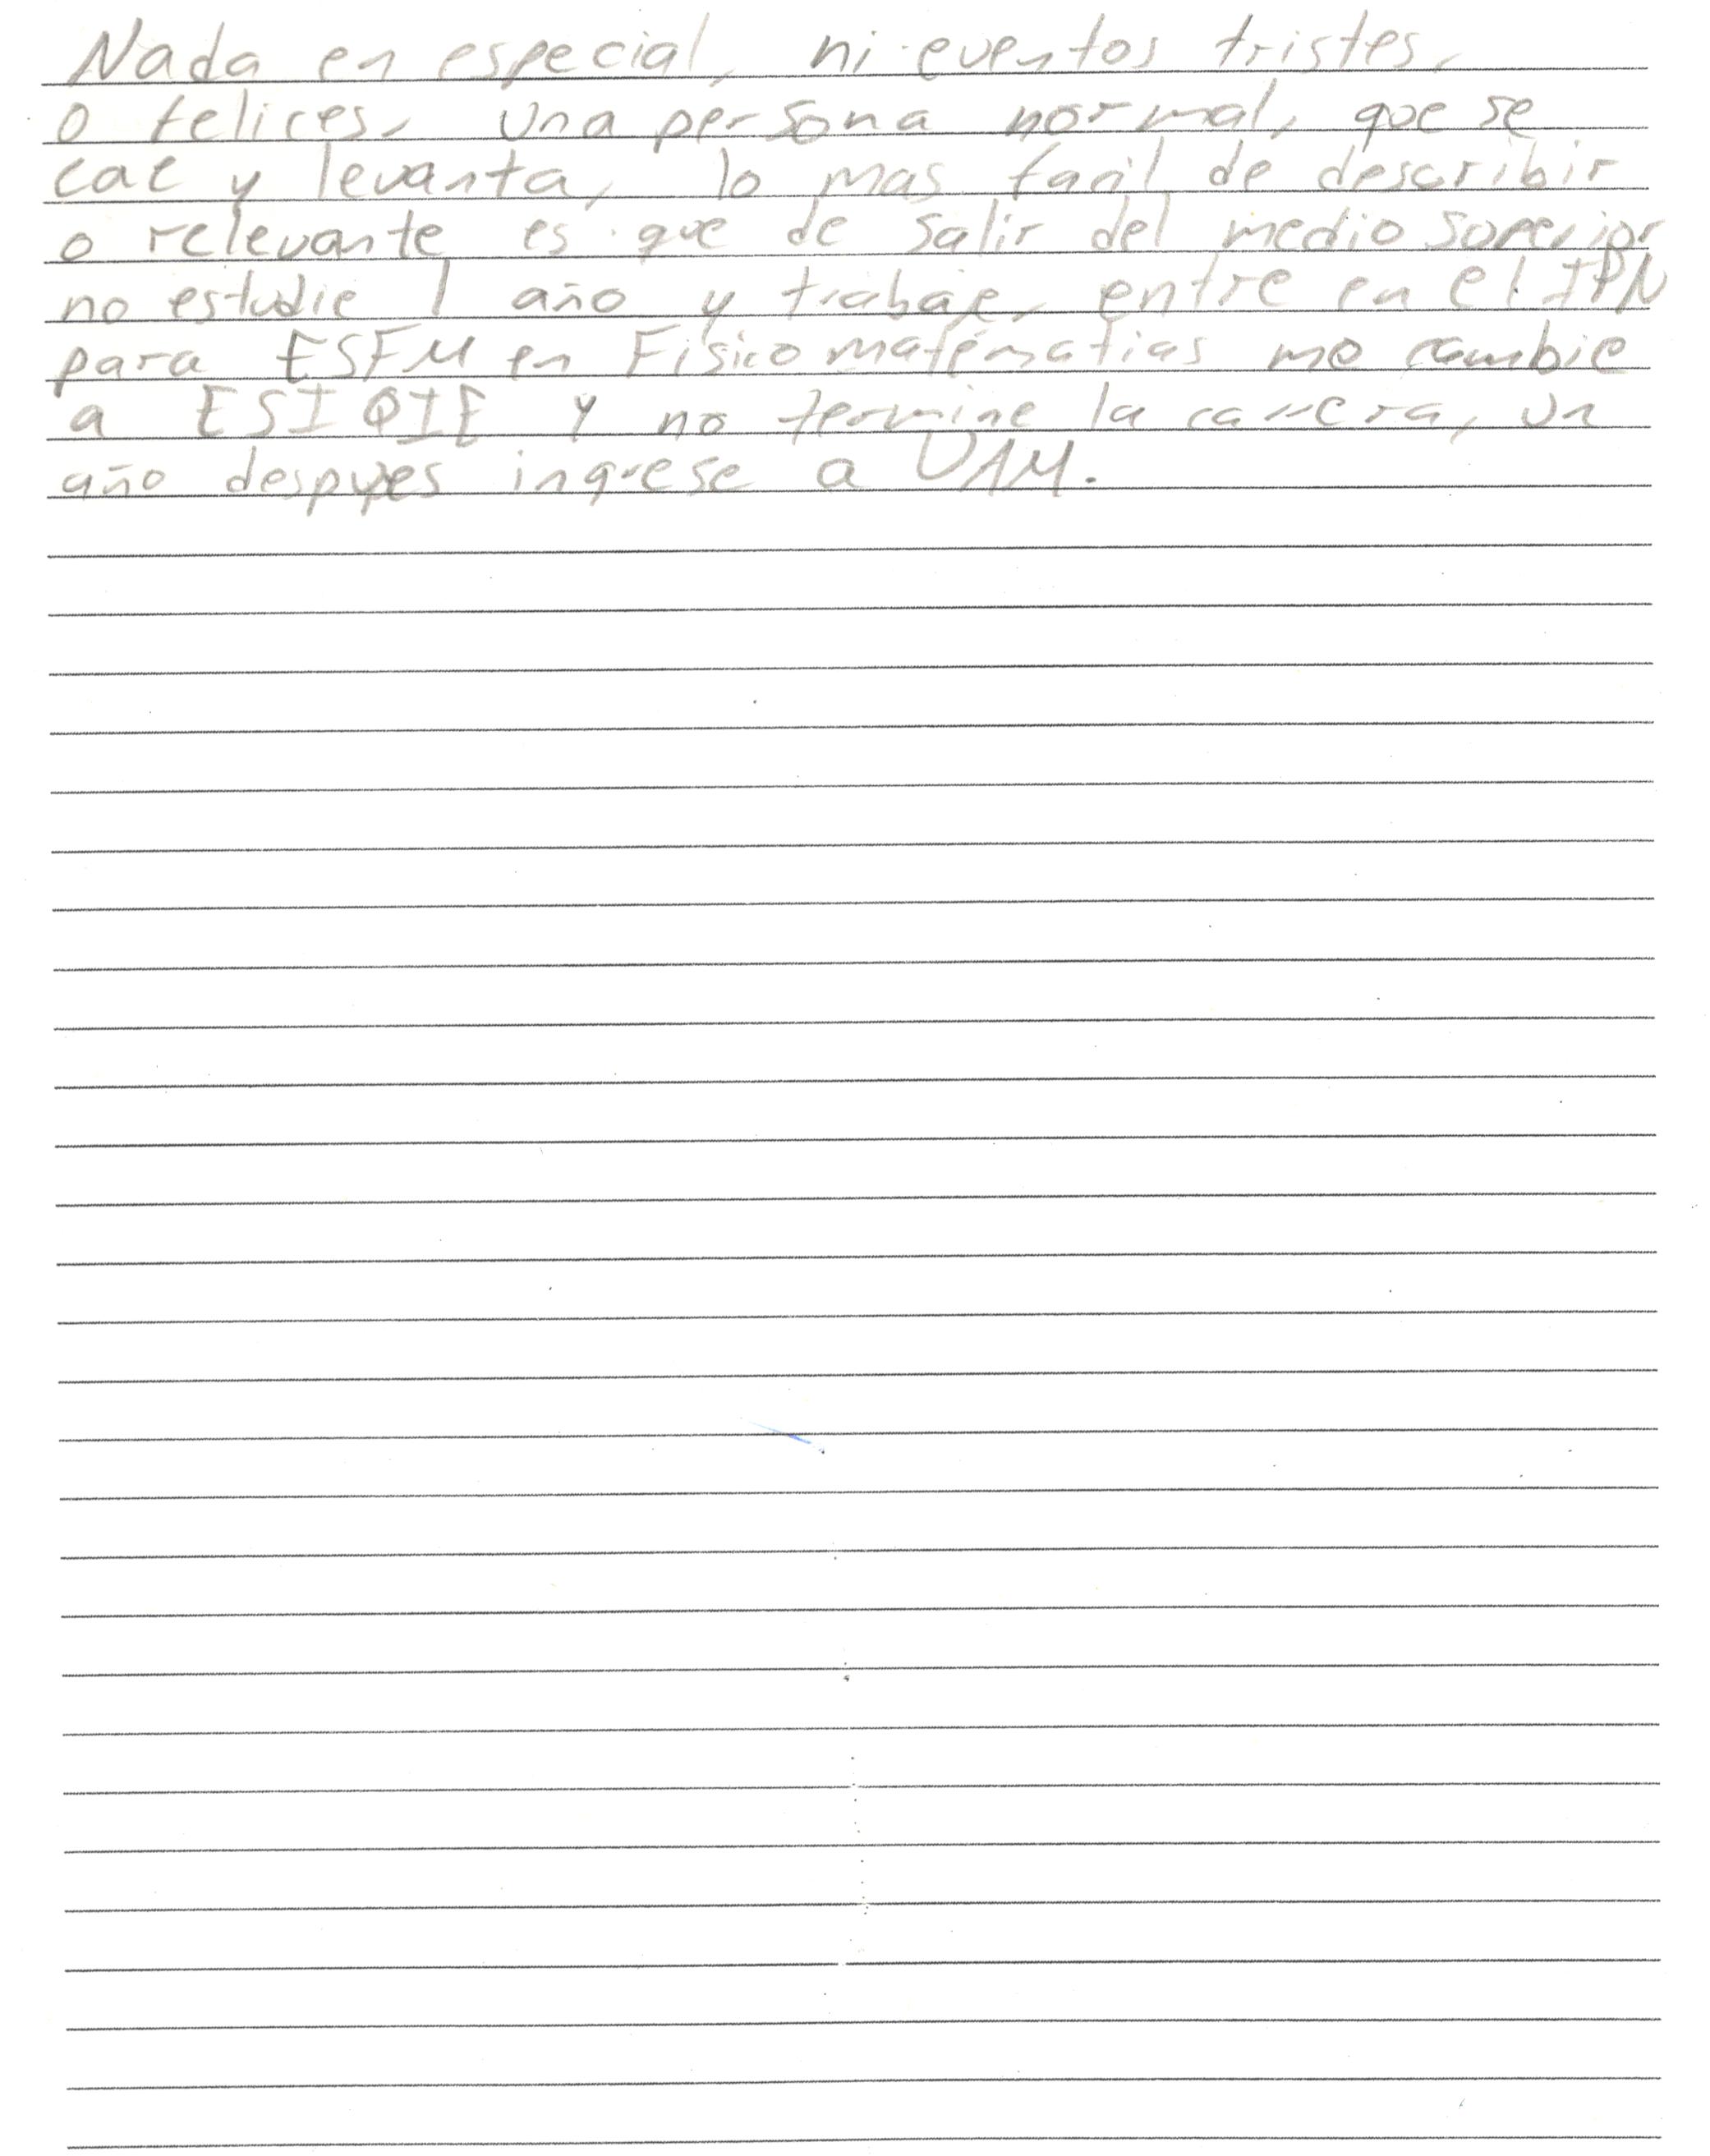 Nada en especial, ni eventos tristes,
o felices, una persona normal, que se
cae y levanta, lo mas facil de describir
o relevante es que de salir del medio superior
no estudie 1 año y trabaje, entre en el IPN
para ESFM en Fisico matematias me cambie
a ESIQIE y no termine la carrera, un
año despues ingrese a UAM.